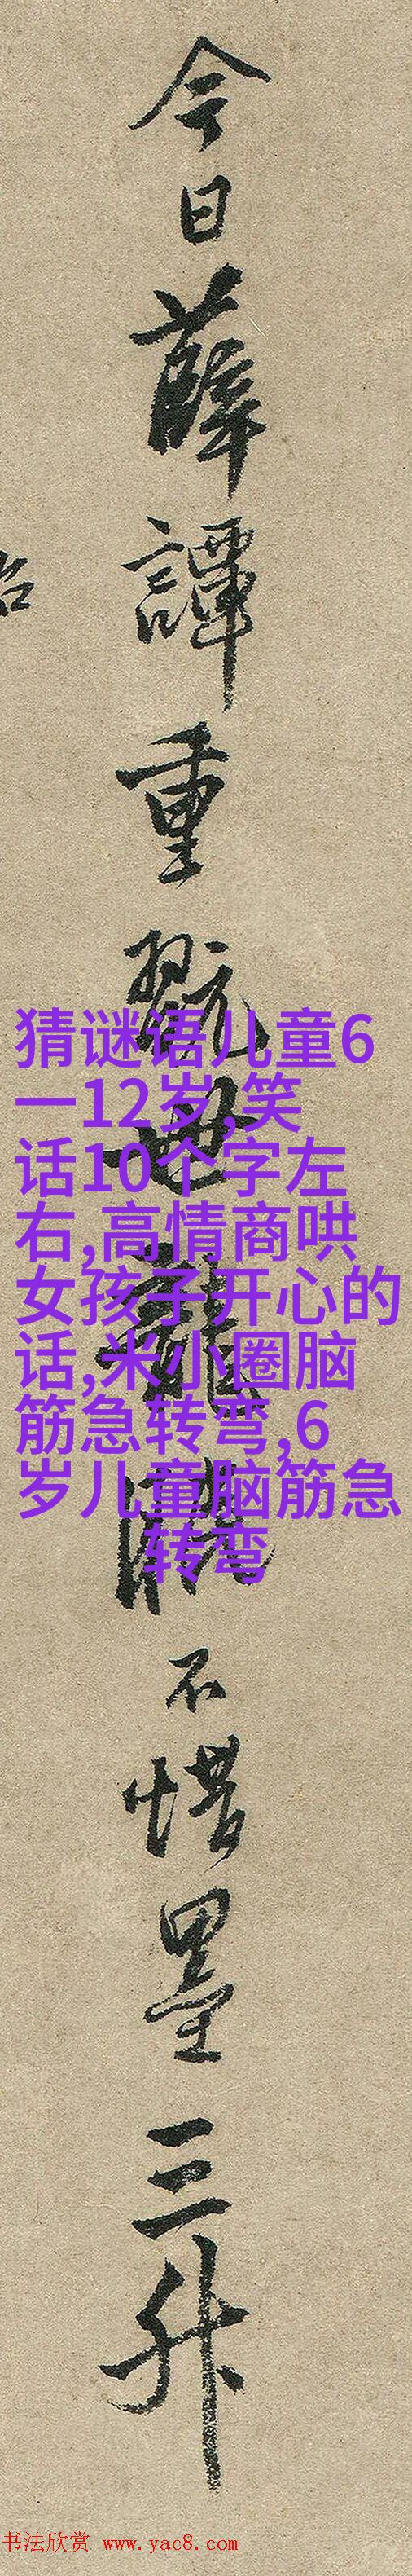 今日薛譚重翫世龍淵不惜墨三升
猜谜语儿童6
一12岁,笑
话10个字左
右,高情商哄
女孩子开心的
话,米小圈脑
筋急转弯,6
岁儿童脑筋急
转弯
书法欣赏 www.yac8.com